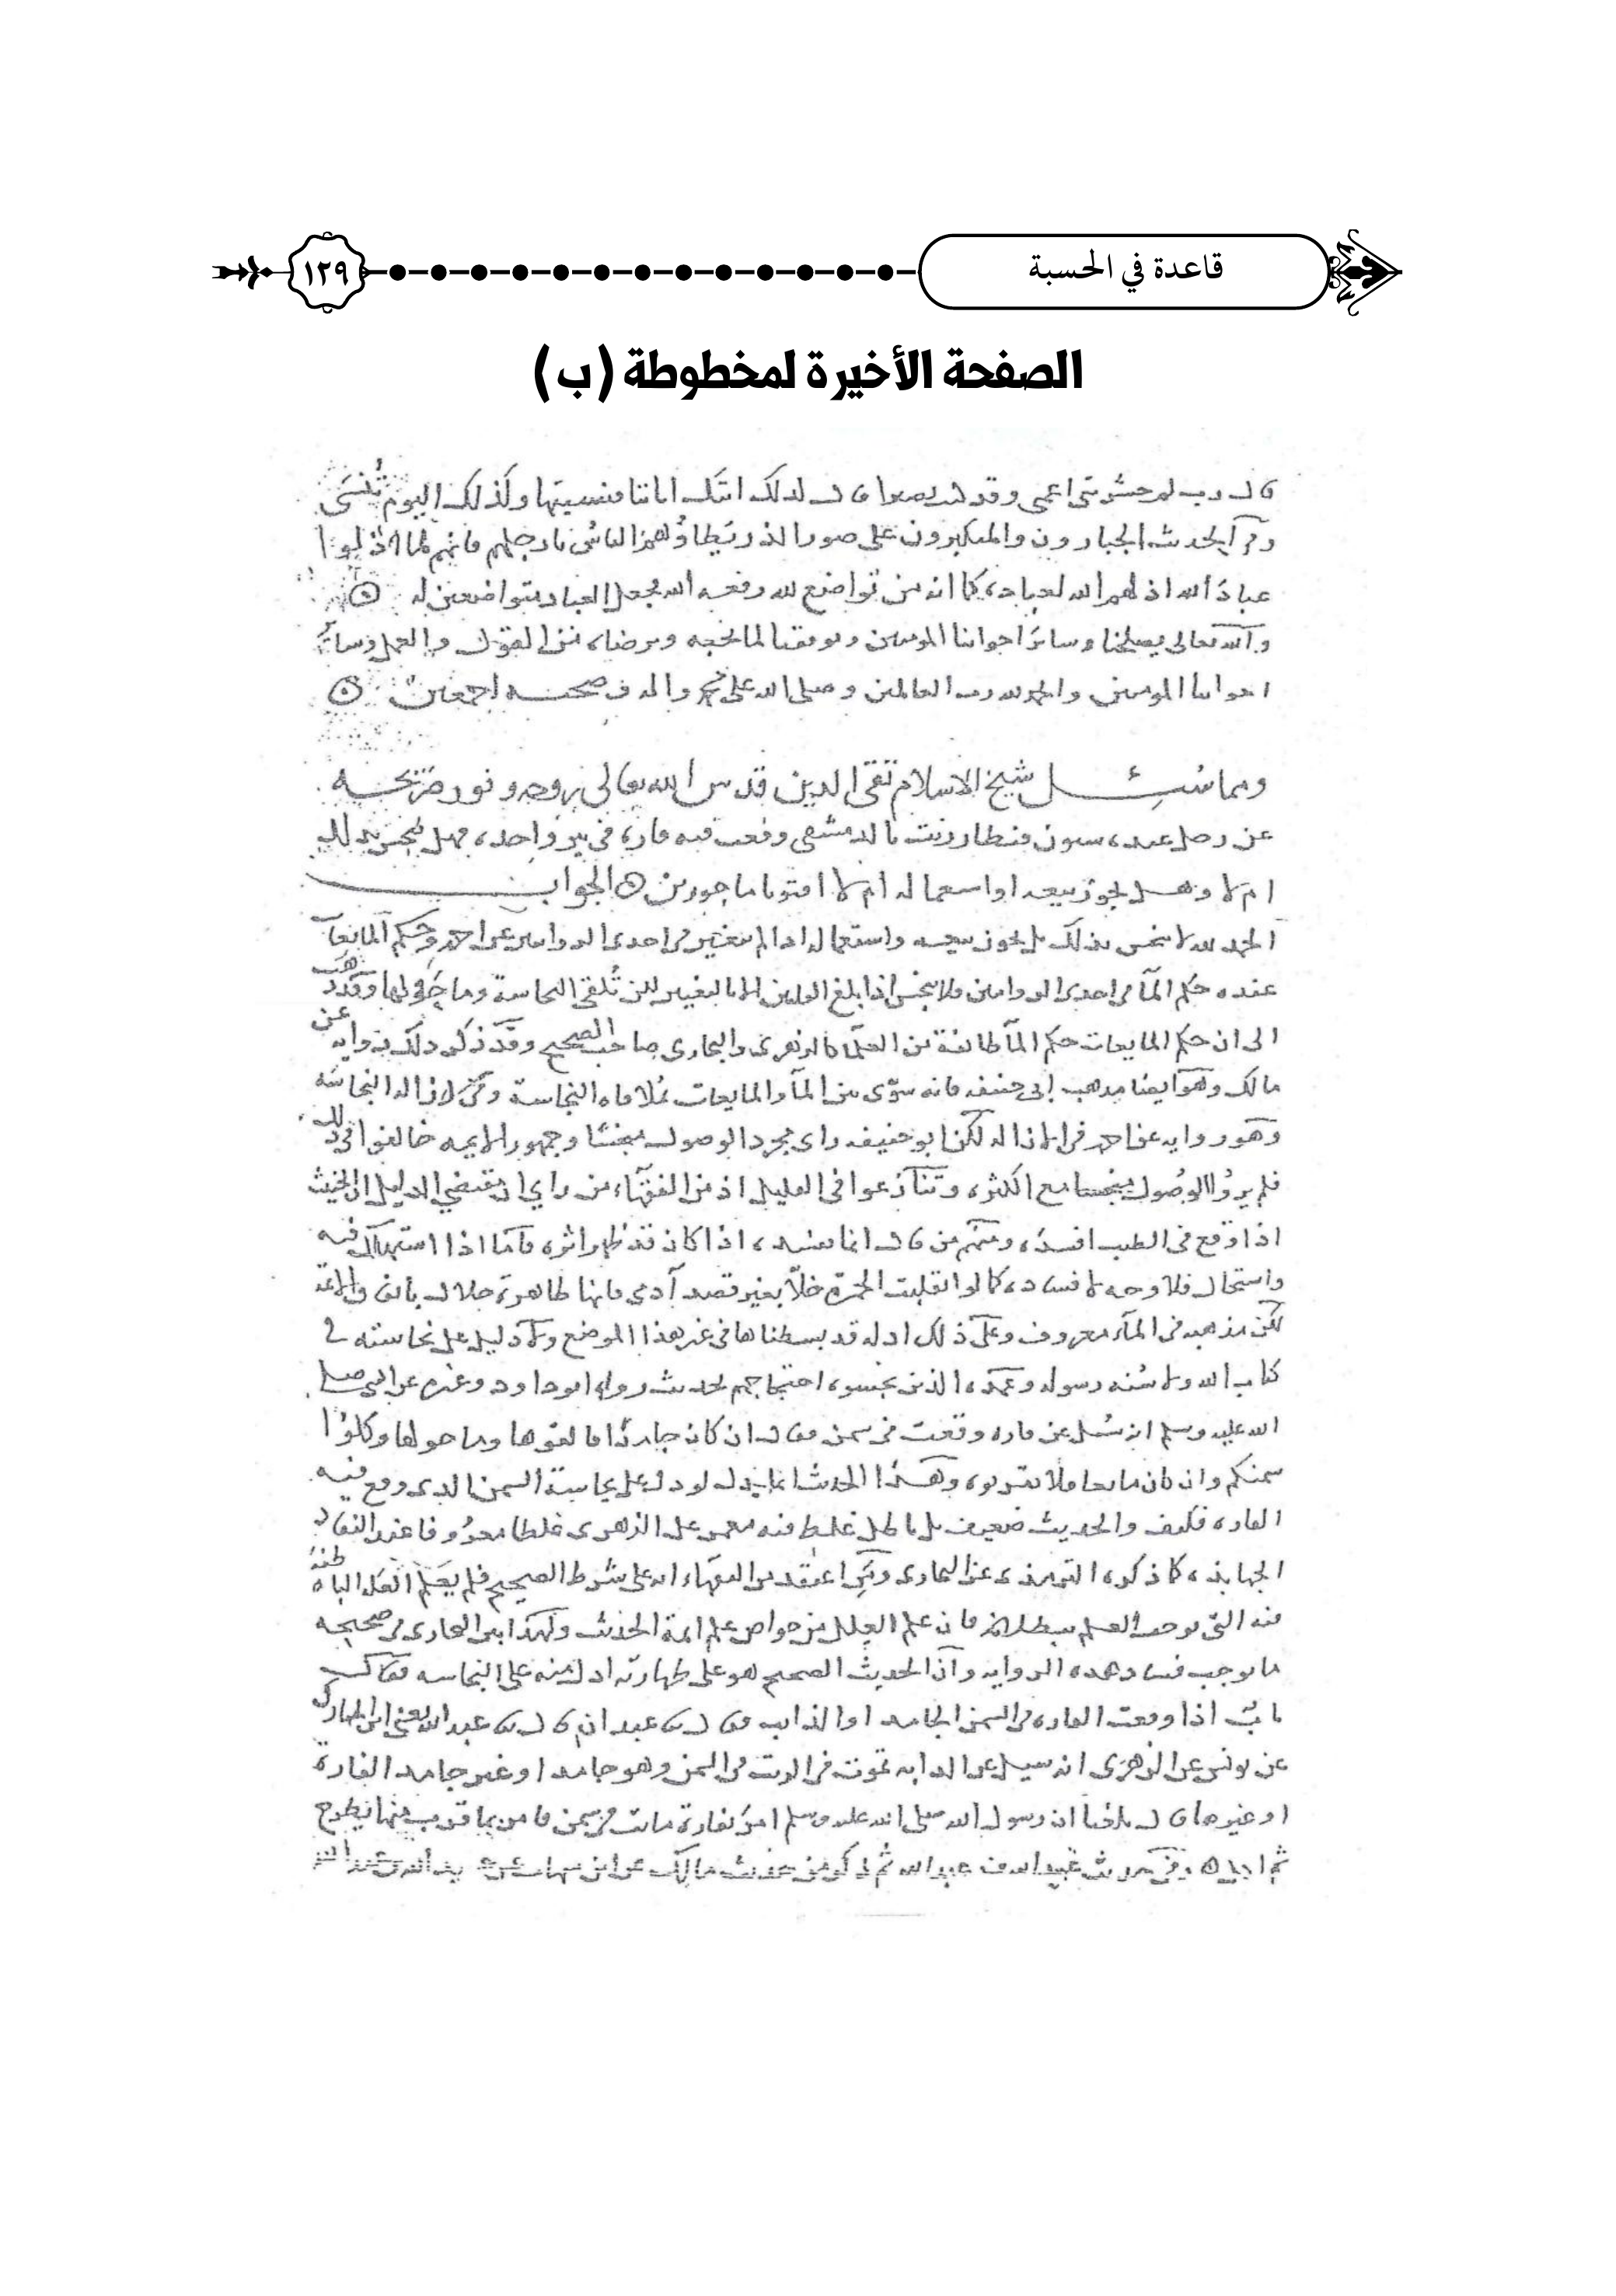 قاعدة في الحسبة
١٢٩
الصفحة الأخيرة لمخطوطة (ب)
قال رب لم حشرتني اعمى وقد كنت بصيرا قال كذلك اتتك اياتنا فنسيتها وكذلك اليوم تُنسَى
وفي الحديث الجبارون والمتكبرون على صور الذر يَطاؤُهم الناس بارجلهم فانهم لما اذلوا
عبادَ الله اذلهم الله لعباده كما انه من تواضع لله رفعه الله فجعل العباد متواضعين له
والله تعالى يصلحنا وسائر اخواننا المومنين ويوفقنا لما يحبه ويرضاه من القول والعمل وسائر
اخواننا المومنين والحمد لله رب العالمين وصلى الله على محمد واله وصحبه اجمعين
ومما سُئِل شيخ الاسلام تقى الدين قدس الله تعالى روحه ونور ضريحه
عن رجل عنده ستون قنطار زيت بالدمشقي وقعت فيه فارة في بير واحده فهل ينجس بذلك
ام لا وهل يجوز بيعه او استعماله ام لا افتونا ماجورين الجواب
الحمد لله لا ينجس بذلك بل يجوز بيعه واستعماله اذا لم يتغير في احدى الروايتين عن احمد وحكم المايعات
عنده حكم الماء في احدى الروايتين فلا ينجس اذا بلغ القلتين الا بالتغيير لكن تُلقى النجاسة وما حَولها وقد ذهب
الى ان حكم المايعات حكم الماء طائفة من العلماء كالزهرى والبخارى صاحب الصحيح وقد ذكر ذلك رواية عن
مالك وهو ايضا مذهب ابى حنيفه فانه سوّى بين الماء والمايعات بمُلاقاه النجاسة وفى ازالة النجاسَة
وهو رواية عن احمد في الازاله لكن ابو حنيفه راى مجرد الوصول منجسًا وجمهور الايمه خالفوا في ذلك
فلم يروُا الوصُول منجسا مع الكثره وتنازعوا فى القليل اذ من الفقهاء من راي ان مقتضي الدليل ان الخبيث
اذا وقع فى الطيب افسده ومنهم من قال انما يفسده اذا كان قد ظهر اثره فامّا اذا استهلك فيه
واستحال فلا وجه لافساده كما لو انقلبت الخمرة خلاًّ بغير قصد آدمى فانها طاهرة حلال باتفاق الايمة
لكن مذهبه فى الماء معروف وعلى ذلك ادله قد بسطناها في غير هذا الموضع ولا دليل على نجاسته في
كتاب الله ولا سُنه رسوله وعمده الذين نجسوه احتجاجهم بحديث رواه ابو داود وغيره عن النبي صلى
الله عليه وسلم انه سُئل عن فاره وقعت في سمن فقال ان كان جامدًا فالقوها وما حولها وكلوا
سمنكم وان كان مايعا فلا تقربوه وهذا الحديث انما يدل لو دل على نجاسة السمن الذى وقع فيه
الفاره فكيف والحديث ضعيف بل باطل غلط فيه معمر على الزهرى غلطا معرُوفا عند النقاد
الجهابذه كما ذكره الترمذى عن البخارى ومَن اعتقد من الفقهاء انه على شرط الصحيح فلم يَعلم العلة الباطنة
فيه التى توجب العلم ببطلانه فان علم العِلل من خواص علم ايمة الحديث ولهذا بين البخارى في صحيحه
ما يوجب فساد هذه الروايه وان الحديث الصحيح هو على طهارته ادل منه على النجاسه فقال
بابُ اذا وقعت الفاره في السمن الجامد او الذايب فقال حدثنا عبدان قال حدثنا عبد الله يعني ابن المبارك
عن يونس عن الزهرَى انه سيل عن الدابه تموت في الزيت والسمن وهو جامد او غير جامد الفارة
او غيرها قال بلغنا ان رسول الله صلى الله عليه وسلم امرَ بفارة ماتت في سمن فامر بما قرب منها فطرح
ثم اكل من حديث عُبيد الله بن عبد الله ثم ذكر من حديث مالك عن ابن شهاب عن